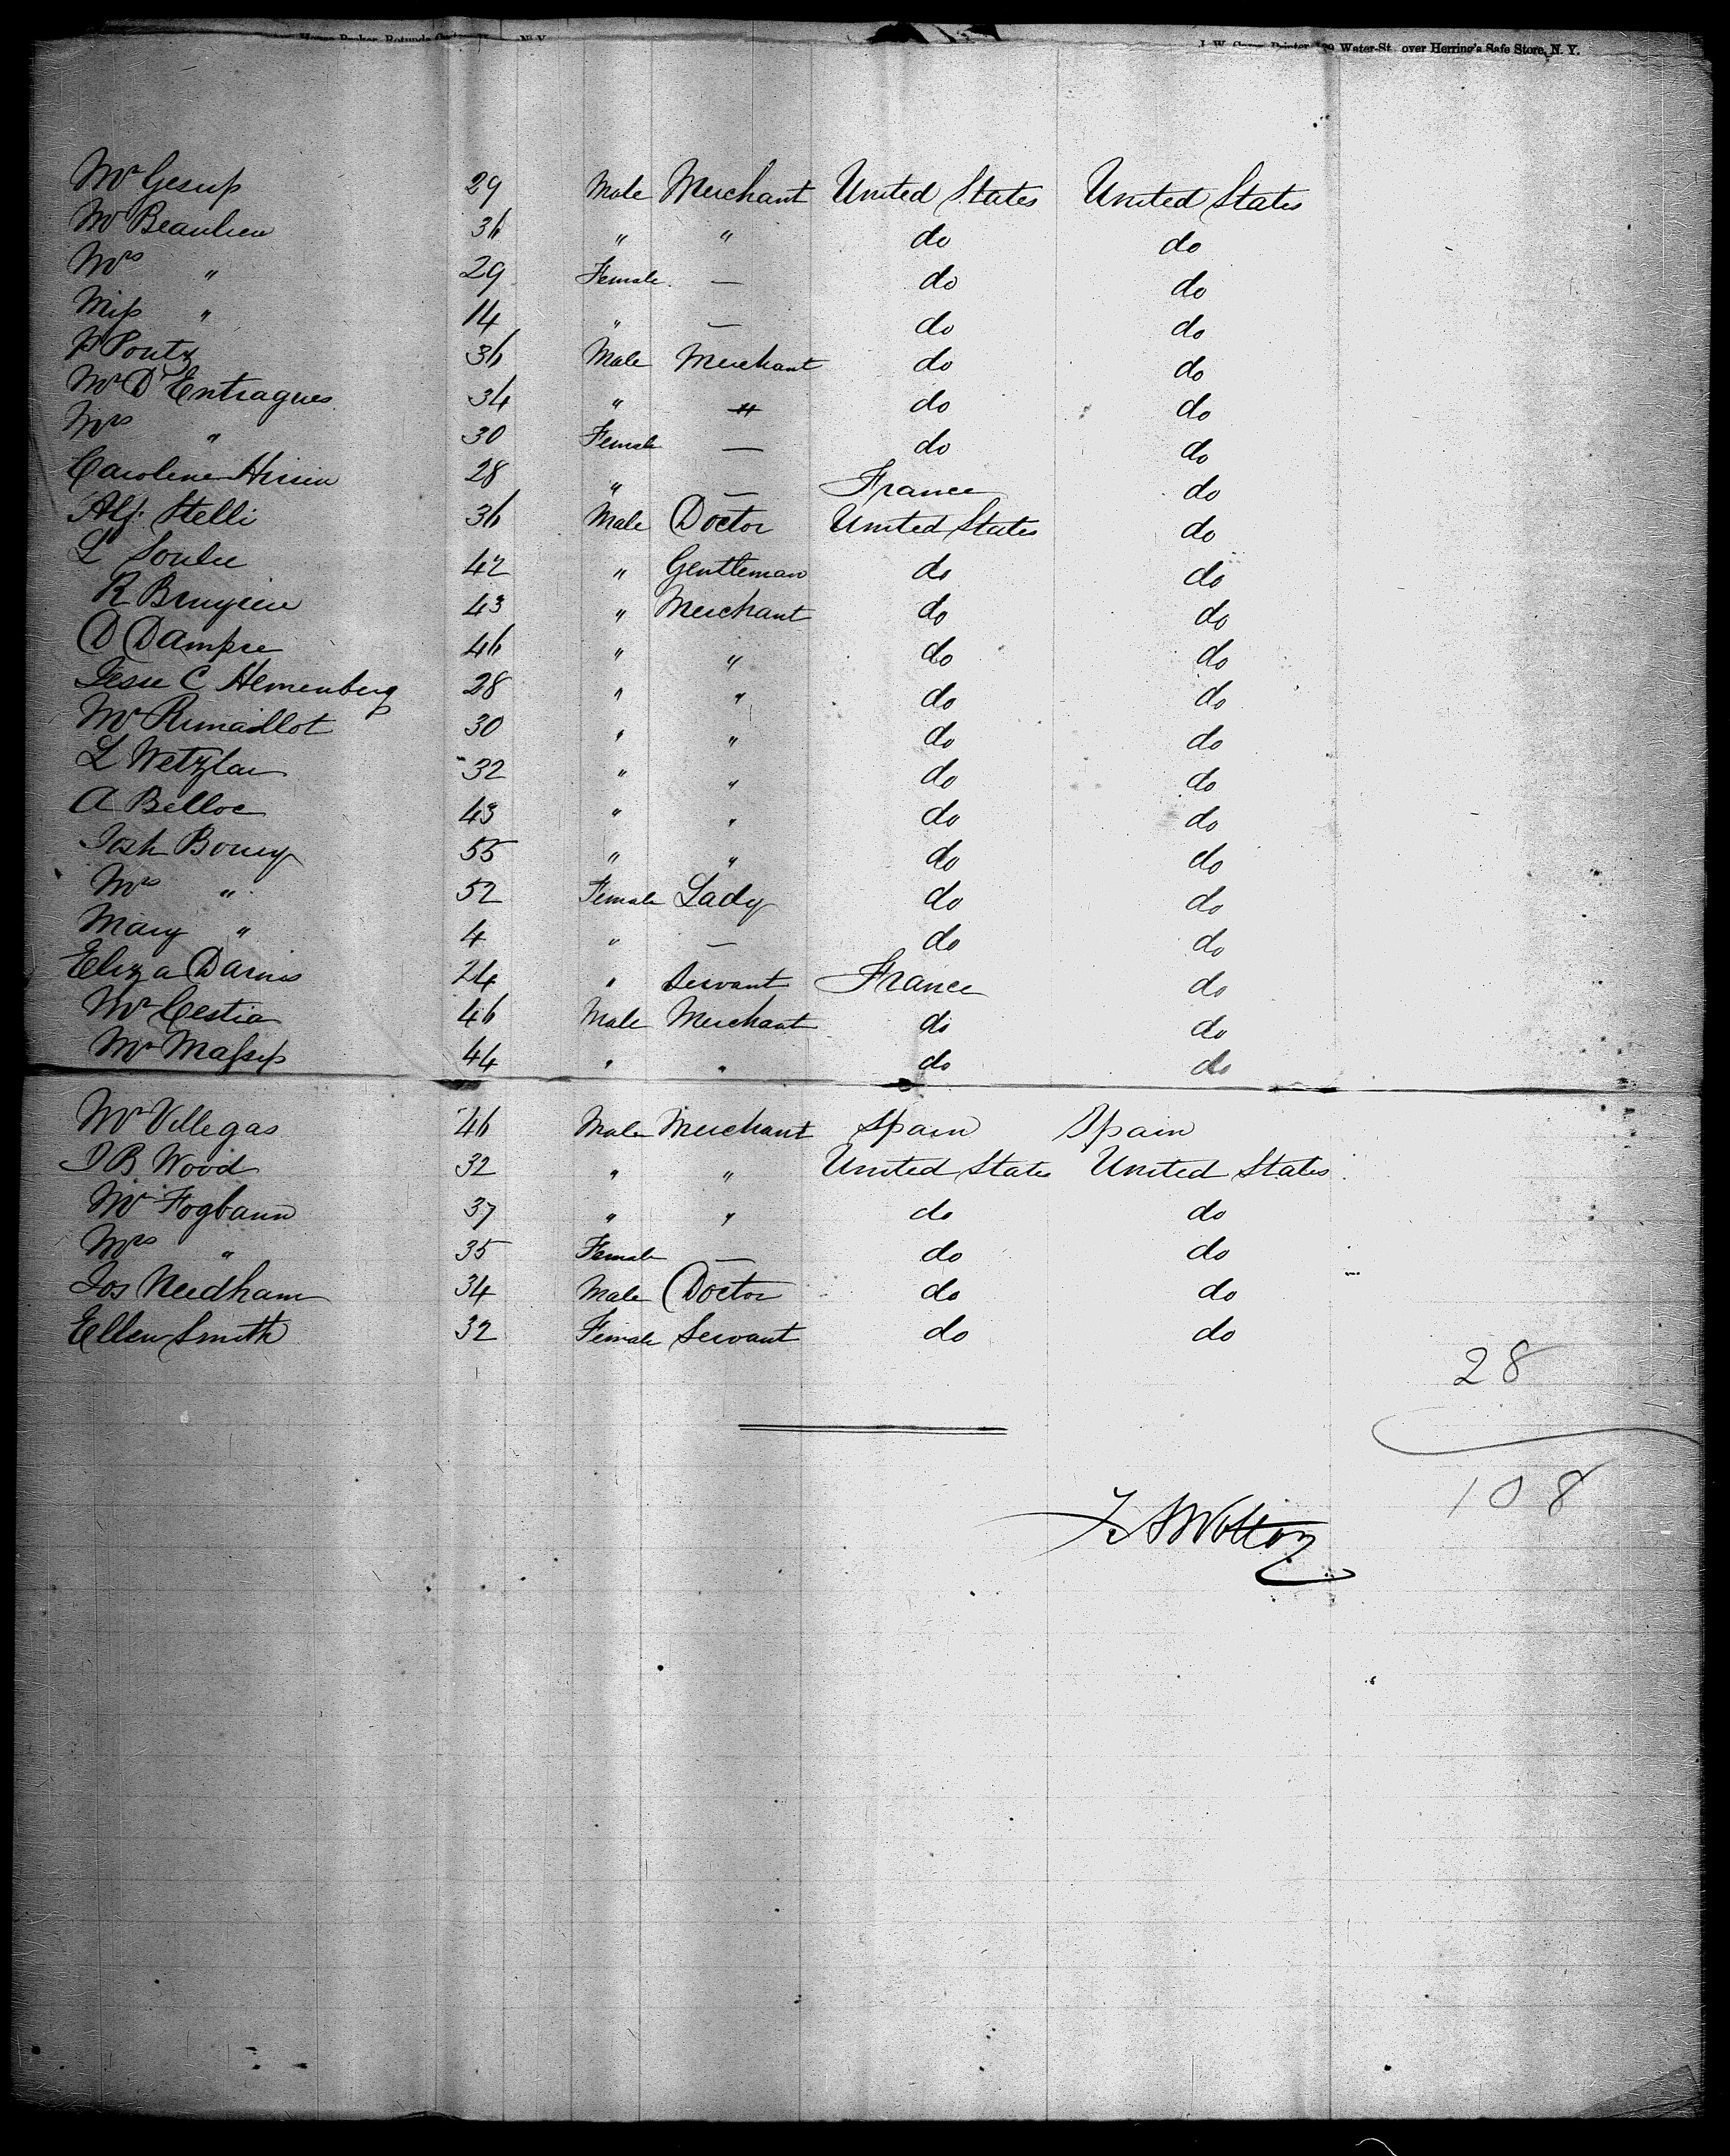 Water-St. over Herring's Safe Store, N. Y.
Mr Gesup 29 Male Merchant United States United States
Mr Beaulieu 36 " " do do
Mrs " 29 Female — do do
Miss " 14 " — do do
P Pontz 36 Male Merchant do do
Mr D'Entragues 34 " " do do
Mrs " 30 Female — do do
Caroline 28 " — France do
Alf. Stelli 36 Male Doctor United States do
L Soulie 42 " Gentleman do do
R Bruyere 43 " Merchant do do
D Dampre 46 " " do do
C Hemenberg 28 " " do do
Mr Rimaillot 30 " " do do
L Wetzlar 32 " " do do
A Belloc 43 " " do do
Bouey 55 " " do do
Mrs " 52 Female Lady do do
Mary " 4 " — do do
Eliza Darnis 24 " Servant France do
Mr Cestia 46 Male Merchant do do
Mr Massip 44 " " do do
Mr Villegas 46 Male Merchant Spain Spain
J B Wood 32 " " United States United States
Mr Fogbaum 37 " " do do
Mrs " 35 Female — do do
Jos Needham 34 Male Doctor do do
Ellen Smith 32 Female Servant do do
28
108
J A Wotton